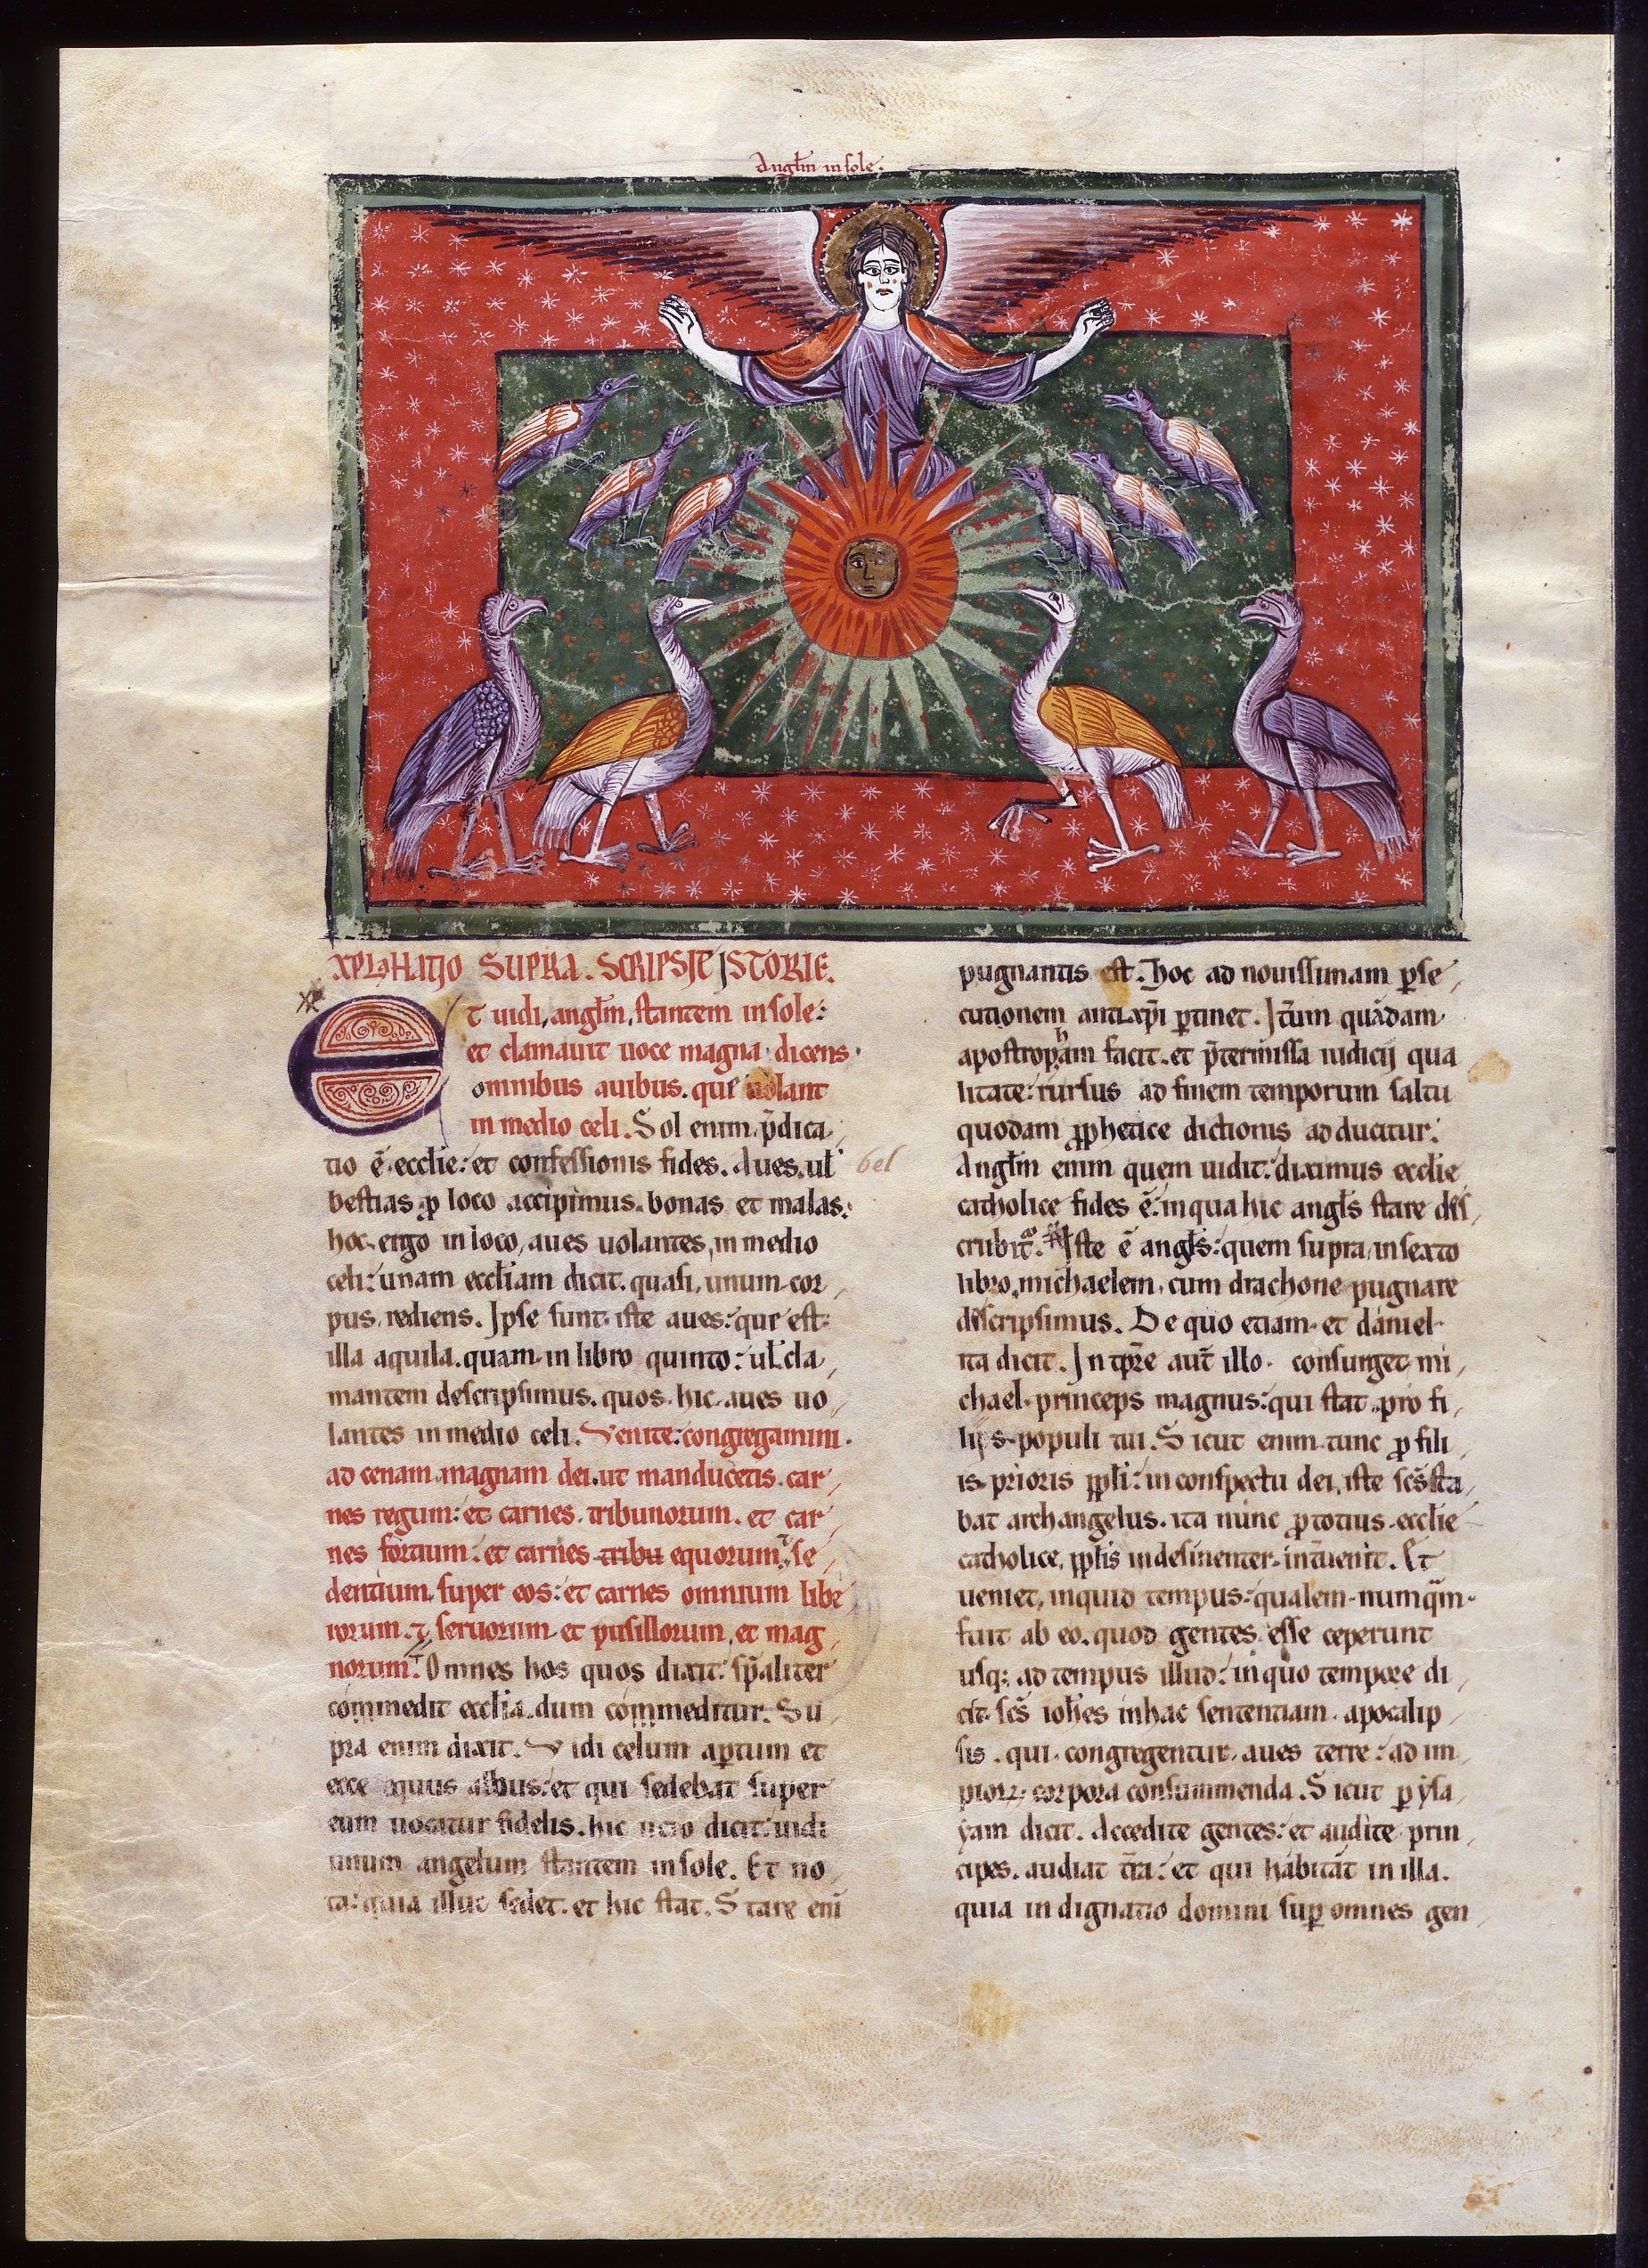 Anglm in sole:
XPLAHATIO SUPRA. SCRIPSTE ISTORIE.
Et uidi, anglm, stantem in sole:
et clamauit uoce magna dicens
omnibus auibus. que uolant
in medio celi. Sol enim, p̄dica,
tio ē. ecclie: et confessionis fides. Aues. ul
bel
bestias ꝓ loco accipimus. bonas et malas:
hoc ergo in loco, aues uolantes, in medio
celi: unam eccliam dicit. quasi, unum cor,
pus, rediens. Ipse sunt iste aues: que est
illa aquila. quam in libro quinto: ul cla,
mantem descripsimus. quos hic aues uo,
lantes in medio celi. Venite: congregamini.
ad cenam magnam dei. ut manducetis. car,
nes regum: et carnes tribunorum. et car,
nes fortium: et carnes tribu equorum, ⁊ se,
dentium, super eos: et carnes omnium libe,
rorum. ⁊ seruorum et pusillorum, et mag,
norum. Omnes hos quos dixit sp̄aliter
commedit ecclia. dum commeditur. Su,
pra enim dixit. Vidi celum aꝑtum et
ecce equus albus: et qui sedebat super
eum uocatur fidelis. hic uero dicit: uidi
unum angelum stantem in sole. Et no
ta: quia illuc sedet. et hic stat. Stare eni
pugnantis est. Hoc ad nouissimam ꝑse,
cutionem antixp̄i ꝑtinet. It̄um quādam
apostropham facit. et p̄termissa iudicij qua
litate: rursus ad finem temporum saltu
quodam ꝓphetice dictionis ad ducitur:
Anglm enim quem uidit: diximus ecclie
catholice fides ē: in qua hic angls stare des,
cribit. Iste ē angls: quem supra, in sexto
libro, michaelem, cum drachone pugnare
descripsimus. De quo etiam et daniel
ita dicit. In tp̄re aut̄ illo. consurget mi,
chael princeps magnus: qui stat pro fi,
lijs populi tui. Sicut enim tunc ꝓ fili,
is prioris ppli: in conspectu dei, iste scs̄ sta,
bat archangelus. ita nunc ꝓ totius ecclie
catholice, pplis indesinenter int̄uenit. Et
ueniet, inquid tempus: qualem numqm
fuit ab eo. quod gentes esse ceperunt
usq; ad tempus illud: in quo tempore di,
cit scs̄ iohes in hac sententiam apocalip,
sis. qui congregentur aues terre: ad im,
piorꝝ corpora consummenda. Sicut ꝑ ysa,
yam dicit. Accedite gentes: et audite prin,
cipes. audiat t̄ra: et qui habitat in illa.
quia in dignatio domini suꝑ omnes gen,